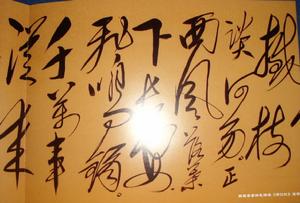 撼树
谈何易。正
西风落叶
下长安
飞鸣镝。
千万事
从来